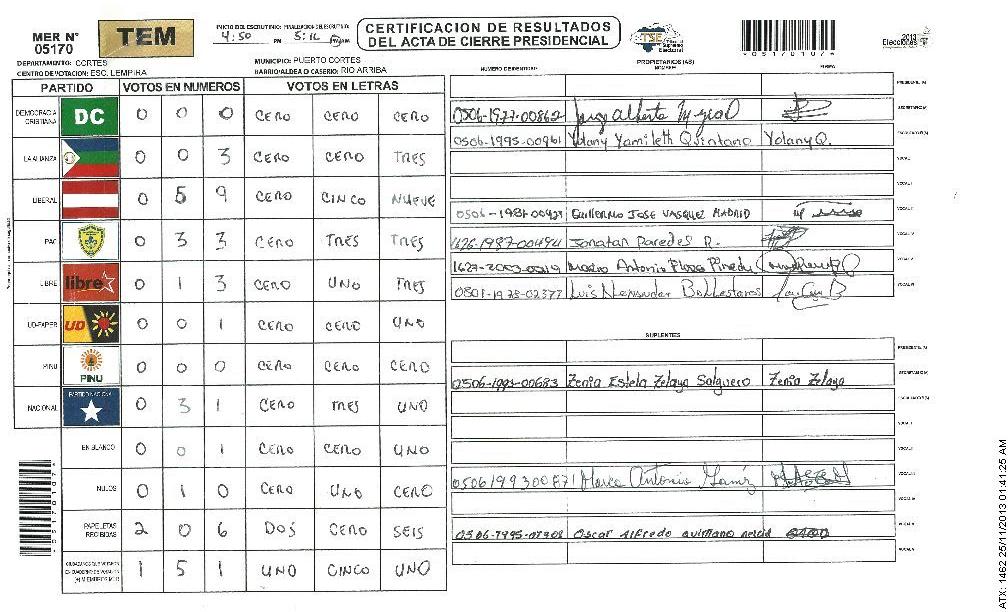 MER N°
05170
TEM
INICIO DEL ESCRUTINIO: FINALIZACION DEL ESCRUTINIO:
4:50 PM 5:16
CERTIFICACION DE RESULTADOS
DEL ACTA DE CIERRE PRESIDENCIAL
TSE
Tribunal
Supremo
Electoral
2013
Elecciones
DEPARTAMENTO: CORTES
MUNICIPIO: PUERTO CORTES
CENTRO DE VOTACION: ESC. LEMPIRA
BARRIO/ALDEA O CASERIO: RIO ARRIBA
PROPIETARIOS (AS)
NUMERO DE IDENTIDAD NOMBRE FIRMA
PARTIDO VOTOS EN NUMEROS VOTOS EN LETRAS
DEMOCRACIA CRISTIANA DC 0 0 0 CERO CERO CERO
LA ALIANZA 0 0 3 CERO CERO TRES
LIBERAL 0 5 9 CERO CINCO NUEVE
PAC 0 3 3 CERO TRES TRES
LIBRE libre 0 1 3 CERO UNO TRES
UD-FAPER UD 0 0 1 CERO CERO UNO
PINU PINU 0 0 0 CERO CERO CERO
NACIONAL PARTIDO NACIONAL 0 3 1 CERO TRES UNO
EN BLANCO 0 0 1 CERO CERO UNO
NULOS 0 1 0 CERO UNO CERO
PAPELETAS RECIBIDAS 2 0 6 DOS CERO SEIS
CIUDADANOS QUE VOTARON 1 5 1 UNO CINCO UNO
PRESIDENTE (A)
0506-1977-00862 Jorge Alberto SECRETARIO (A)
0506-1995-00961 Yolany Yamileth Quintano Yolany Q. ESCRUTADOR (A)
VOCAL I
VOCAL II
0506-1981-00929 GUILLERMO JOSE VASQUEZ MADRID
1626-1987-00494 Jonatan Paredes R.
1627-2003-00019 Mario Antonio
0801-1978-02377 Luis
SUPLENTES
PRESIDENTE (A)
0506-1995-00683 Zenia Estela Zelaya Salguero Zenia Zelaya SECRETARIO (A)
ESCRUTADOR (A)
VOCAL I
VOCAL II
0506199300871 Marco Antonio
0506-1995-01908 Oscar Alfredo
ATX: 1462 25/11/2013 01:41:25 AM